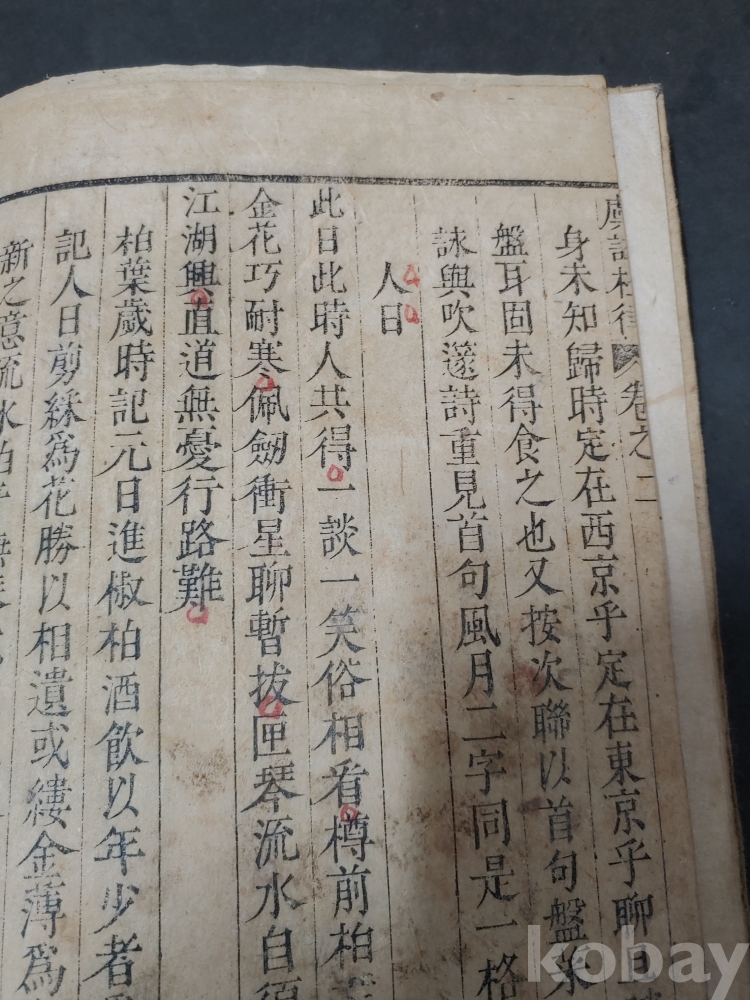 虞註杜律 卷之二
身未知歸時定在西京乎定在東京乎聊且
盤耳固未得食之也又按次聯以首句盤
詠與吹篴詩重見首句風月二字同是一格
人日
此日此時人共得一談一笑俗相看樽前柏
金花巧耐寒佩劒衝星聊暫拔匣琴流水自須
江湖興直道無憂行路難
柏葉歲時記元日進椒柏酒飮以年少者
記人日剪綵爲花勝以相遺或縷金薄爲
新之意流水
kobay